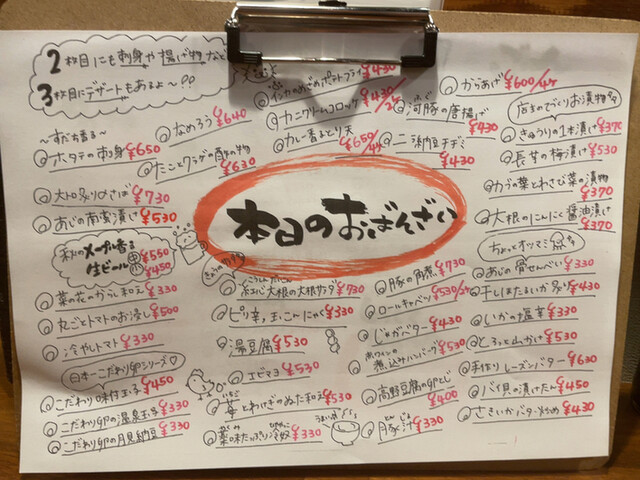 2枚目にも刺身や揚げ物など
3枚目にデザートもあるよ〜??
〜すだち香る〜
ホタテの刺身 ¥650
なめろう ¥640
たことクラゲの酢の物 ¥630
大トロ炙りさば ¥730
あじの南蛮漬け ¥530
秋のメープル香る
生ビール 中 ¥550
小 ¥450
菜の花のからし和え ¥330
丸ごとトマトのお浸し ¥500
冷やしトマト ¥330
日本一こだわり卵シリーズ♡
こだわり味付玉子 ¥450
こだわり卵の温泉玉子 ¥330
こだわり卵の月見納豆 ¥330
インカのめざめポテトフライ ¥430
カニクリームコロッケ ¥430/2ケ
カレー香るとり天 ¥650/4ケ
からあげ ¥600/4ケ
河豚の唐揚げ ¥430
納豆チヂミ ¥430
本日のおばんざい
紅心大根の大根サラダ ¥730
ピリ辛、玉こんにゃく ¥330
湯豆腐 ¥530
エビマヨ ¥530
とわけぎのぬた和え ¥530
薬味たっぷり冷奴 ¥330
豚の角煮 ¥730
ロールキャベツ ¥530/2ケ
じゃがバター ¥430
煮込みハンバーグ ¥530
高野豆腐の卵とじ ¥400
豚汁 ¥330
店主の手づくりお漬物
きゅうりの1本漬け ¥370
長芋の梅漬け ¥530
カブの葉とわさび菜の漬物 ¥370
大根のにんにく醤油漬け ¥370
ちょっとオツマミ
あじの骨せんべい ¥330
干しほたるいか炙り ¥430
いかの塩辛 ¥330
とろっと山かけ ¥530
手作りレーズンバター ¥630
バイ貝の漬けたん ¥450
さきいかバター炒め ¥430